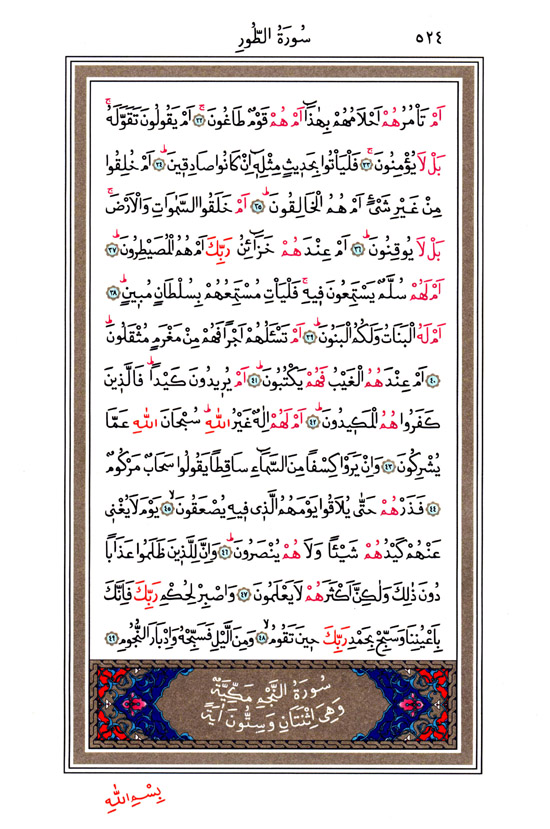 سُورَةُ الطُّورِ ٥٢٤
اَمْ تَأْمُرُهُمْ اَحْلَامُهُمْ بِهٰذَٓا اَمْ هُمْ قَوْمٌ طَاغُونَۚ ﴿٣٢﴾ اَمْ يَقُولُونَ تَقَوَّلَهُۚ
بَلْ لَا يُؤْمِنُونَۚ ﴿٣٣﴾ فَلْيَأْتُوا بِحَد۪يثٍ مِثْلِه۪ٓ اِنْ كَانُوا صَادِق۪ينَۜ ﴿٣٤﴾ اَمْ خُلِقُوا
مِنْ غَيْرِ شَيْءٍ اَمْ هُمُ الْخَالِقُونَۜ ﴿٣٥﴾ اَمْ خَلَقُوا السَّمٰوَاتِ وَالْاَرْضَۚ
بَلْ لَا يُوقِنُونَۜ ﴿٣٦﴾ اَمْ عِنْدَهُمْ خَزَٓائِنُ رَبِّكَ اَمْ هُمُ الْمُصَيْطِرُونَۜ ﴿٣٧﴾
اَمْ لَهُمْ سُلَّمٌ يَسْتَمِعُونَ ف۪يهِۚ فَلْيَأْتِ مُسْتَمِعُهُمْ بِسُلْطَانٍ مُب۪ينٍۜ ﴿٣٨﴾
اَمْ لَهُ الْبَنَاتُ وَلَكُمُ الْبَنُونَۜ ﴿٣٩﴾ اَمْ تَسْـَٔلُهُمْ اَجْرًا فَهُمْ مِنْ مَغْرَمٍ مُثْقَلُونَۜ
﴿٤٠﴾ اَمْ عِنْدَهُمُ الْغَيْبُ فَهُمْ يَكْتُبُونَۜ ﴿٤١﴾ اَمْ يُر۪يدُونَ كَيْدًاۜ فَالَّذ۪ينَ
كَفَرُوا هُمُ الْمَك۪يدُونَۜ ﴿٤٢﴾ اَمْ لَهُمْ اِلٰهٌ غَيْرُ اللّٰهِۜ سُبْحَانَ اللّٰهِ عَمَّا
يُشْرِكُونَ ﴿٤٣﴾ وَاِنْ يَرَوْا كِسْفًا مِنَ السَّمَٓاءِ سَاقِطًا يَقُولُوا سَحَابٌ مَرْكُومٌ
﴿٤٤﴾ فَذَرْهُمْ حَتّٰى يُلَاقُوا يَوْمَهُمُ الَّذ۪ي ف۪يهِ يُصْعَقُونَۙ ﴿٤٥﴾ يَوْمَ لَا يُغْن۪ي
عَنْهُمْ كَيْدُهُمْ شَيْـًٔا وَلَا هُمْ يُنْصَرُونَۜ ﴿٤٦﴾ وَاِنَّ لِلَّذ۪ينَ ظَلَمُوا عَذَابًا
دُونَ ذٰلِكَ وَلٰكِنَّ اَكْثَرَهُمْ لَا يَعْلَمُونَ ﴿٤٧﴾ وَاصْبِرْ لِحُكْمِ رَبِّكَ فَاِنَّكَ
بِاَعْيُنِنَا وَسَبِّحْ بِحَمْدِ رَبِّكَ ح۪ينَ تَقُومُۙ ﴿٤٨﴾ وَمِنَ الَّيْلِ فَسَبِّحْهُ وَاِدْبَارَ النُّجُومِ ﴿٤٩﴾
سُورَةُ النَّجْمِ مَكِّيَّةٌ
وَهِيَ اِثْنَتَانِ وَسِتُّونَ اٰيَةً
بِسْمِ اللّٰهِ